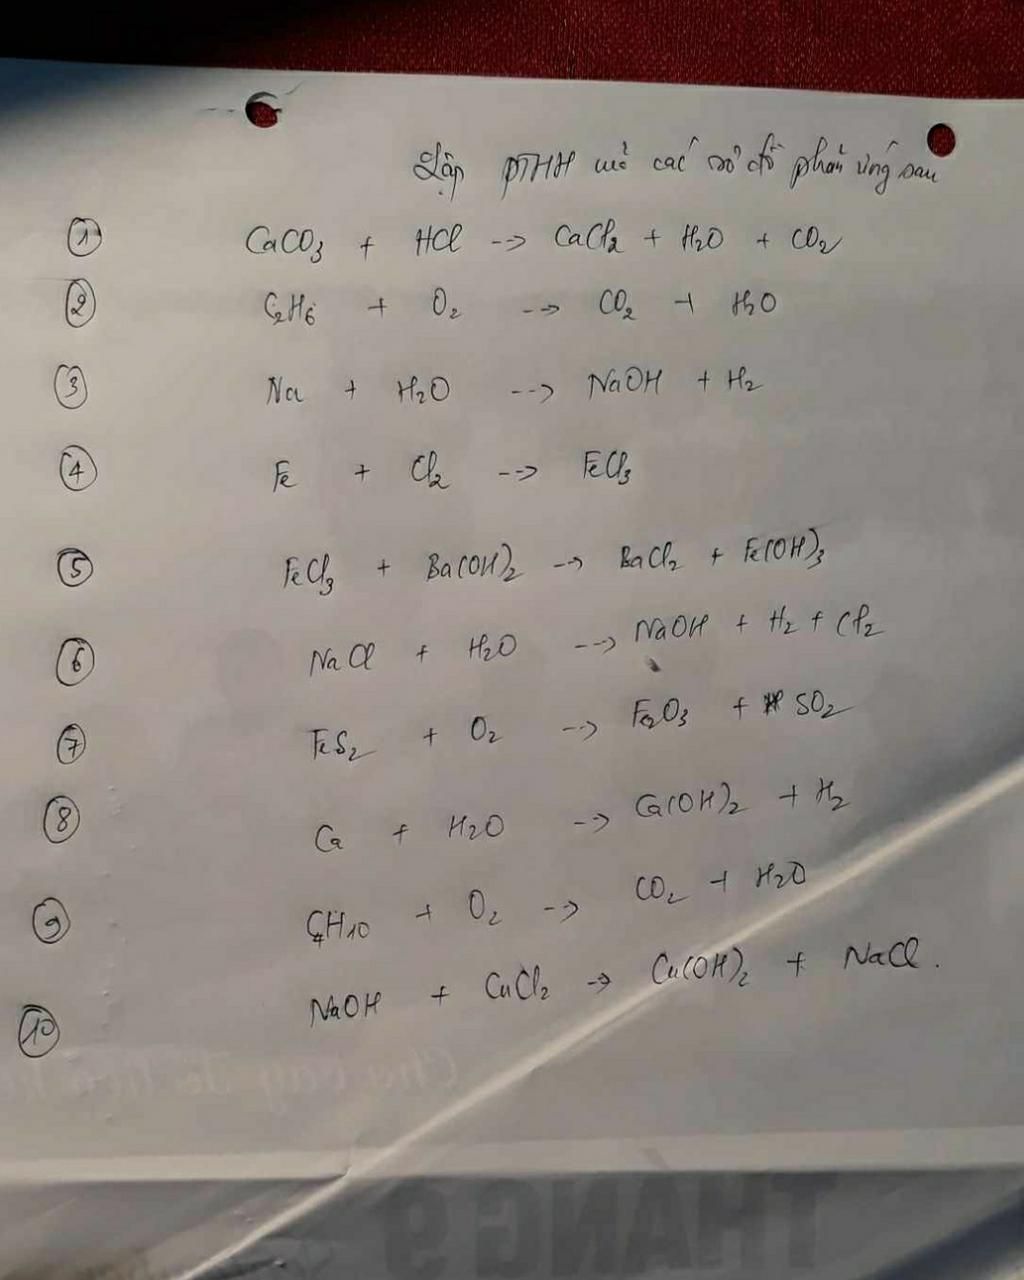 Lập PTHH của các sơ đồ phản ứng sau
① CaCO3 + HCl --> CaCl2 + H2O + CO2
② C2H6 + O2 --> CO2 + H2O
③ Na + H2O --> NaOH + H2
④ Fe + Cl2 --> FeCl3
⑤ FeCl3 + Ba(OH)2 --> BaCl2 + Fe(OH)3
⑥ NaCl + H2O --> NaOH + H2 + Cl2
⑦ FeS2 + O2 --> Fe2O3 + SO2
⑧ Ca + H2O --> Ca(OH)2 + H2
⑨ C4H10 + O2 --> CO2 + H2O
⑩ NaOH + CuCl2 --> Cu(OH)2 + NaCl.
THÁNG 9